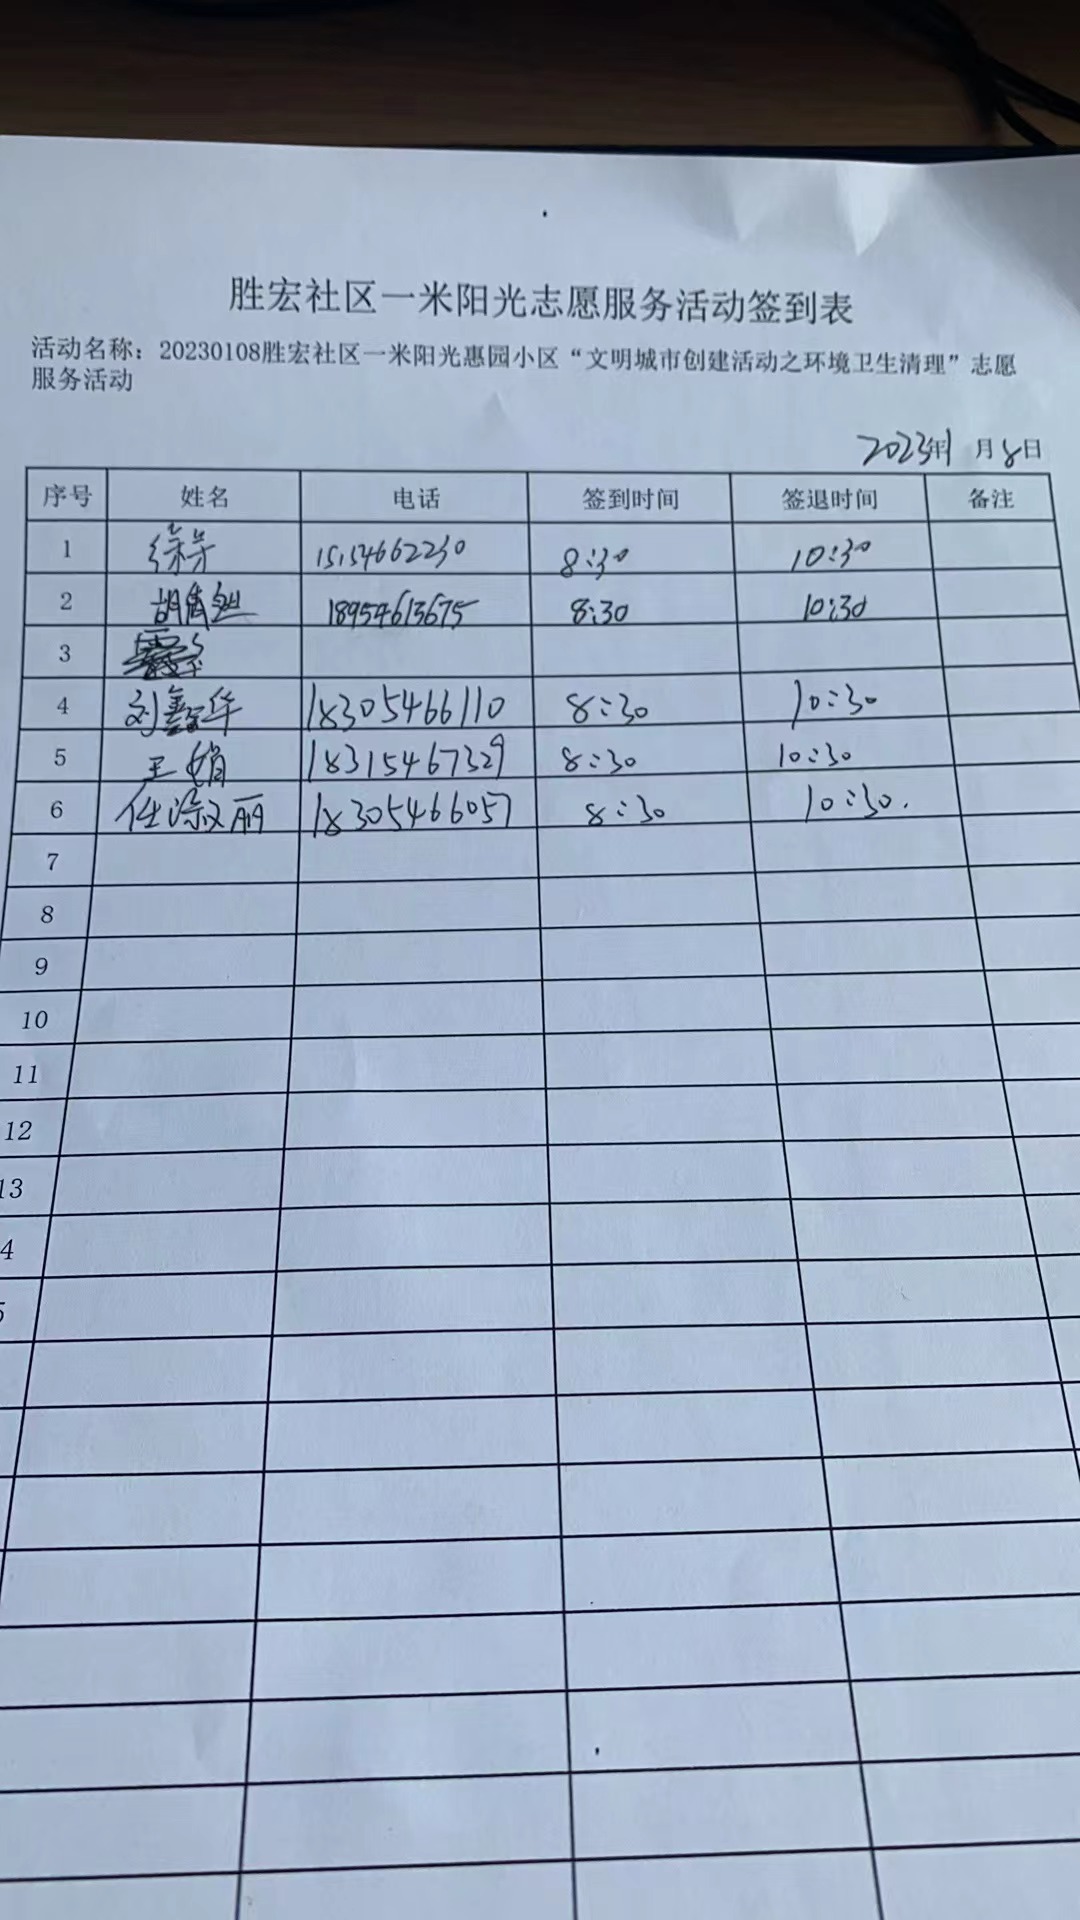 胜宏社区一米阳光志愿服务活动签到表
活动名称：20230108胜宏社区一米阳光惠园小区“文明城市创建活动之环境卫生清理”志愿
服务活动
2023年1月8日
序号 姓名 电话 签到时间 签退时间 备注
1 15154662230 8:30 10:30
2 18954613675 8:30 10:30
3
4 刘鑫华 18305466110 8:30 10:30
5 王娟 18315467329 8:30 10:30
6 任淑丽 18305466057 8:30 10:30.
7
8
9
10
11
12
13
4
5